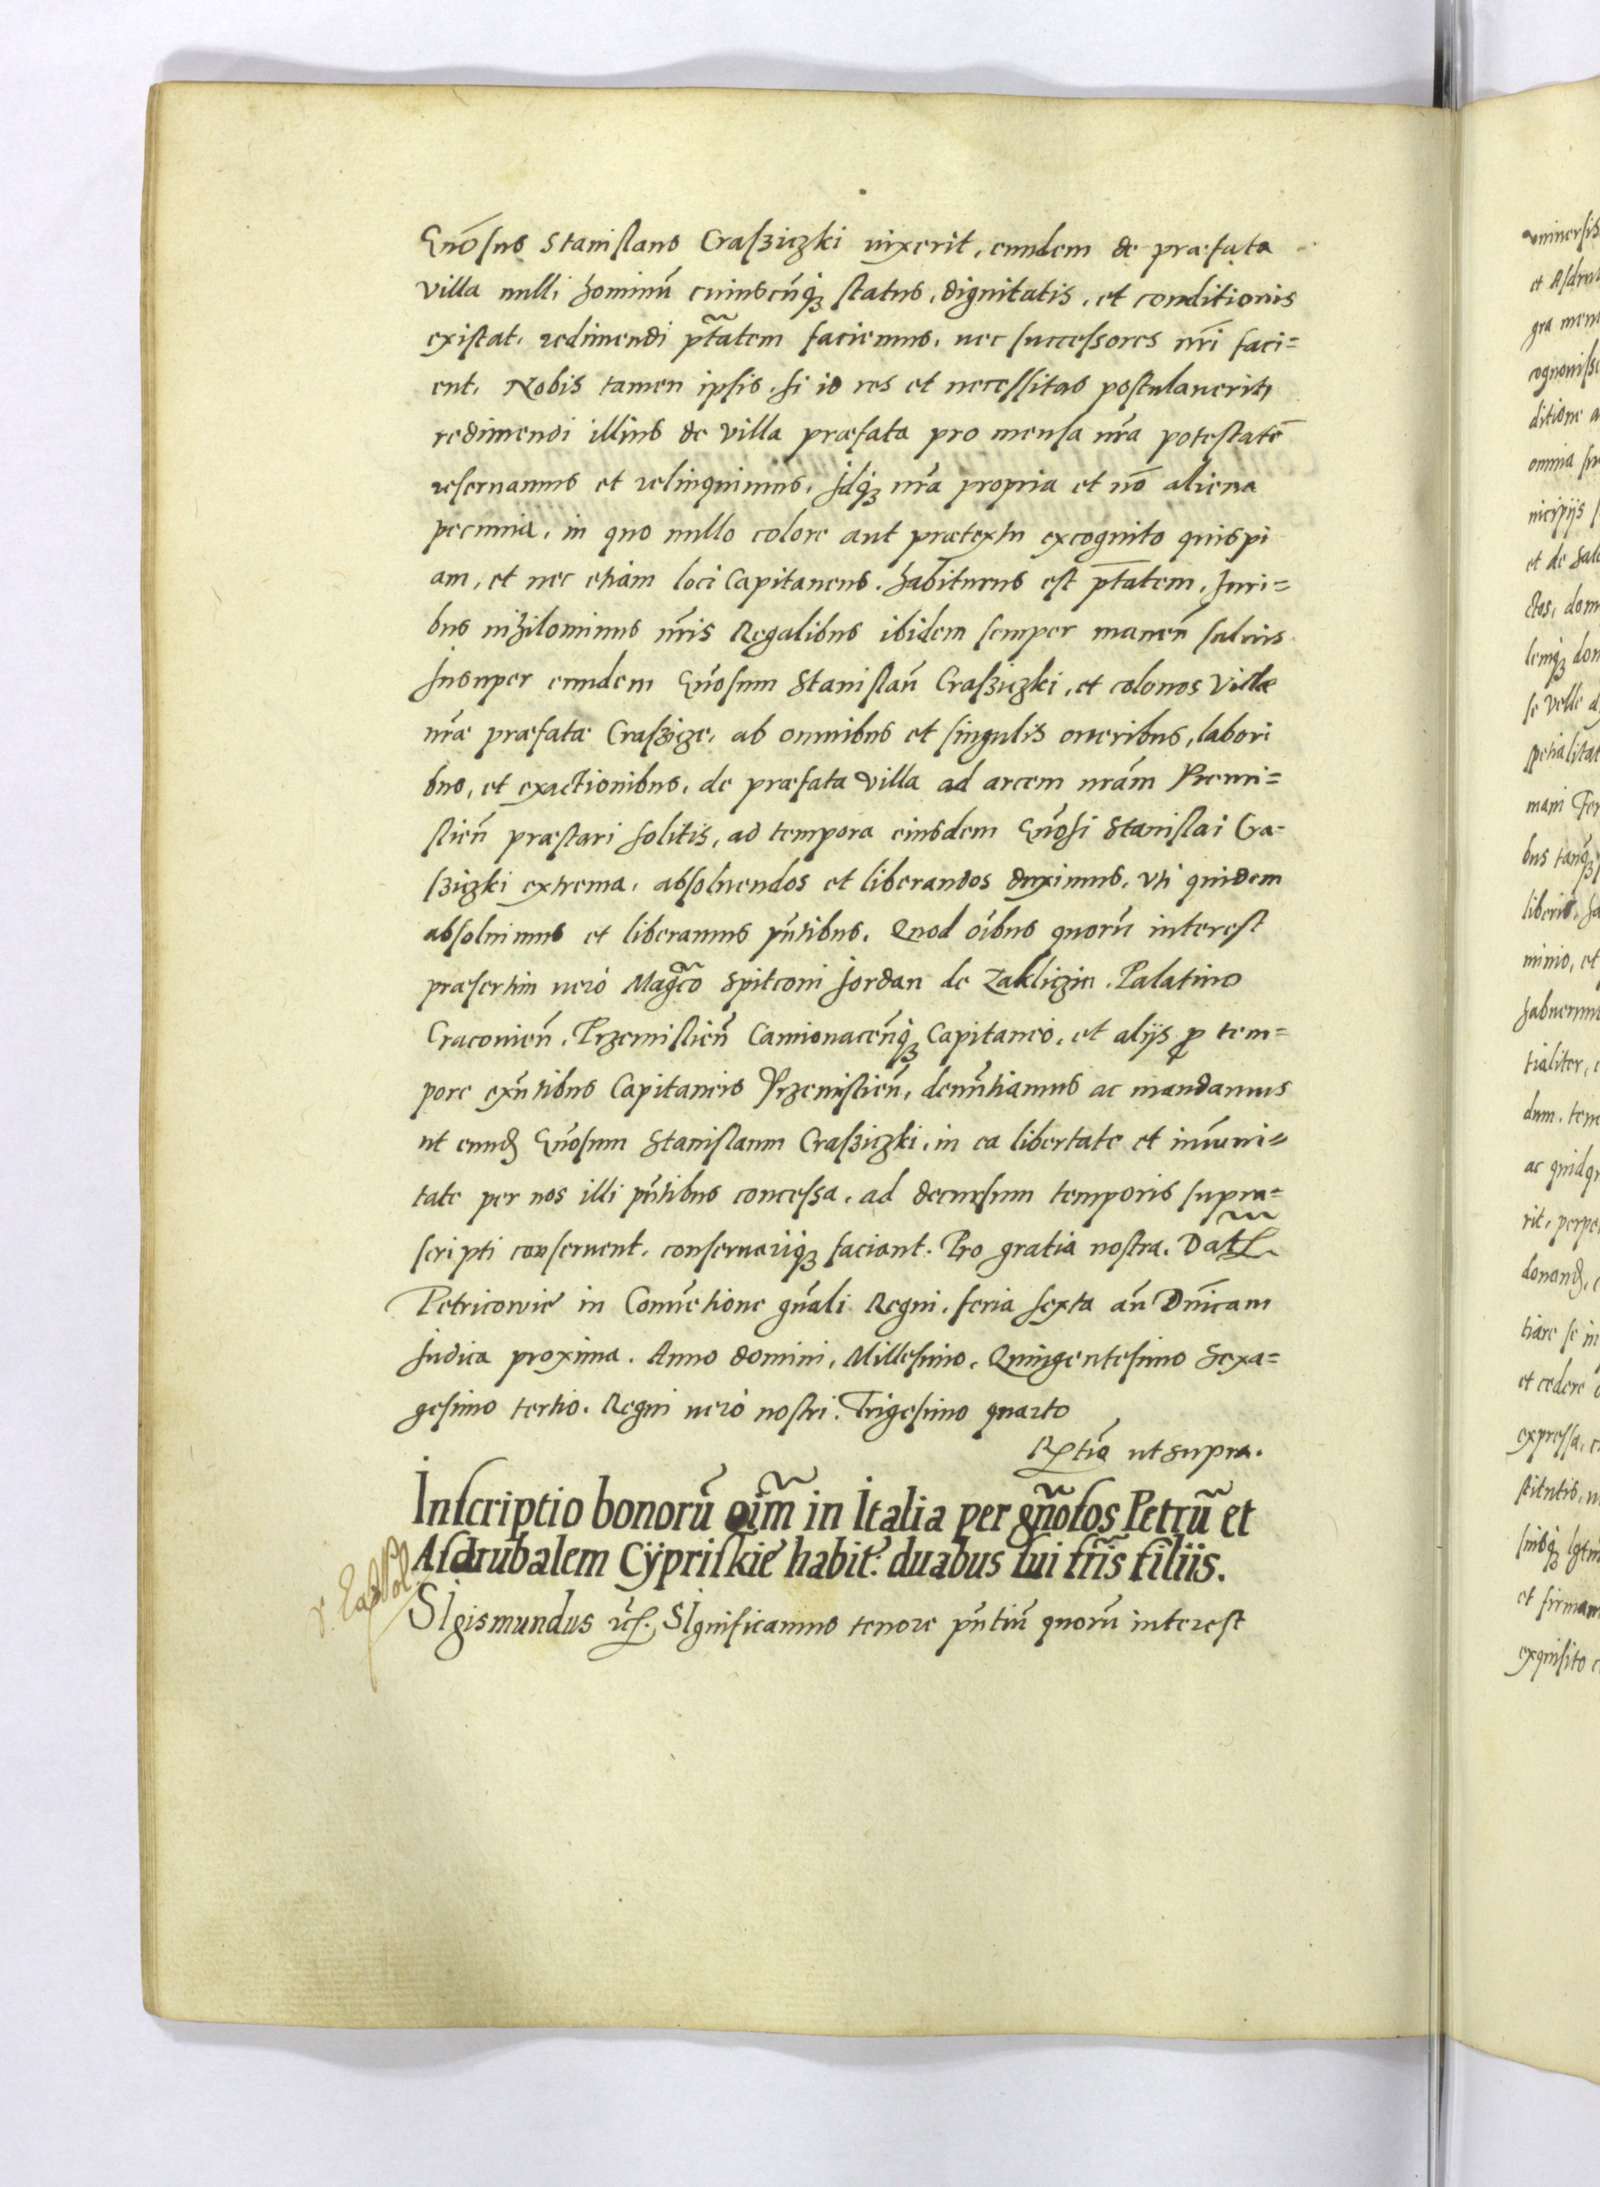 Gnōsus Stanislaus Craſsiczki vixerit, eundem de præfata
villa nulli hominū cuiuscūq3 status, dignitatis, et conditionis
existat, redimendi ptātem faciemus, nec successores nrī faci=
ent, Nobis tamen ipsis, si id res et necessitas postulaverit,
redimendi illius de villa præfata pro mensa nrā potestatē
reservamus et relinquimus, Idq3 nrā propria et nō aliena
pecunia, in quo nullo colore aut prætextu excogitato quispi
am, et nec etiam loci Capitaneus, habiturus est ptātem, Juri=
bus nihilominus nrīs Regalibus ibidem semper manen̄ salvis
Insuper eundem Gnōsum Stanislaū Craſziczki, et colonos Villæ
nræ præfatæ Craſzicze, ab omnibus et singulis oneribus, labori
bus, et exactionibus, de præfata villa ad arcem nrām Premi=
slien̄ præstari solitis, ad tempora eiusdem Gnōsi Stanislai Cra=
sziczki extrema, absolvendos et liberandos duximus, Uti quidem
absolvimus et liberamus pn̄tibus, Quod oībus quorū interest
præsertim verò Magcō Spitconi Jordan de Zakliczin, Palatino
Cracovien̄, Przemislien̄ Camionacen̄q3 Capitaneo, et alijs p tem=
pore exn̄tibus Capitaneis Przemislien̄, denun̄tiamus ac mandamus
ut eund Gnōsum Stanislaum Craſziczki, in ea libertate et imūni=
tate per nos illi pn̄tibus concessa, ad decursum temporis supra=
scripti conservent, conservariq3 faciant. Pro gratia nostra. Dat
Petricoviæ in Convētione gn̄ali Regni, feria sexta an̄ Dnīcam
Judica proxima. Anno domini, Millesimo, Quingentesimo Sexa=
gesimo tertio. Regni verò nostri. Trigesimo quarto
Rtio ut supra.
Inscriptio bonorū oīm in Italia per gn̄osos Petrū et
Asdrubalem Cÿpriskie habit: duabus sui fr̄is filiis.
SIgismundus rc. SIgnificamus tenore pn̄tiū quorū interest